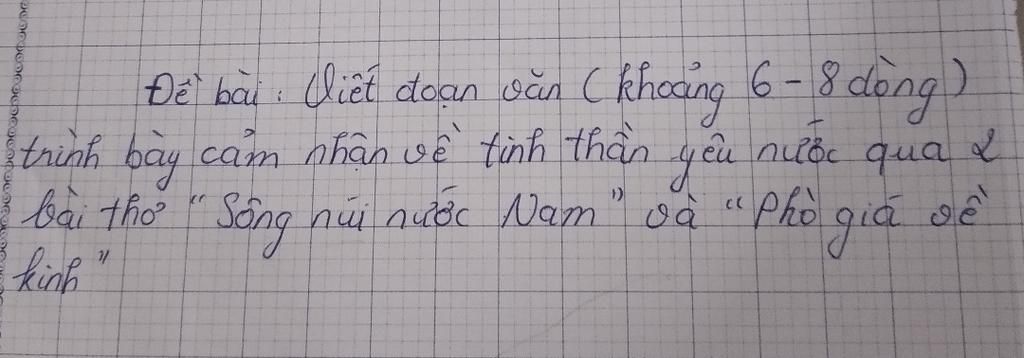 Đề bài: Viết đoạn văn (khoảng 6-8 dòng)
trình bày cảm nhận về tinh thần yêu nước qua 2
bài thơ "Sông núi nước Nam" và "Phò giá về
kinh"